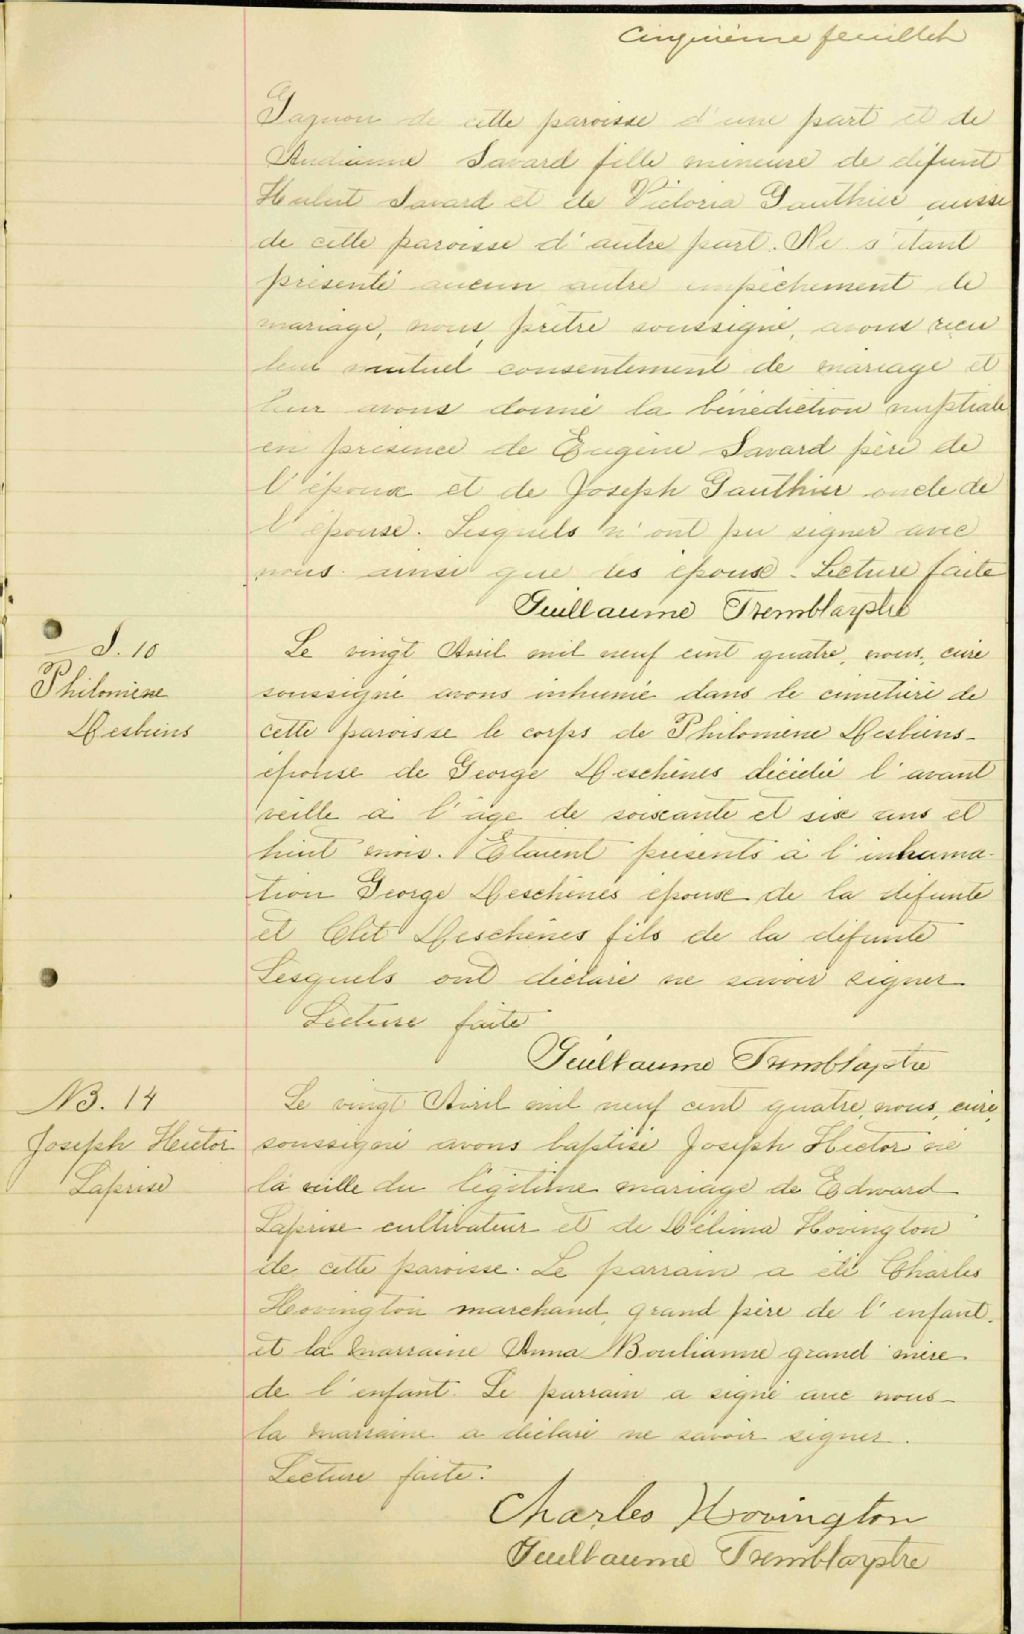 Cinquième feuillet
Gagnon de cette paroisse d'une part et de
Audianne Savard fille mineure de défunt
Hubert Savard et de Victoria Gauthier aussi
de cette paroisse d'autre part. Ne s'étant
présenté aucun autre empêchement de
mariage, nous, prêtre soussigné, avons reçu
leur mutuel consentement de mariage et
leur avons donné la bénédiction nuptiale
en présence de Eugène Savard père de
l'époux et de Joseph Gauthier oncle de
l'épouse. Lesquels n'ont pu signer avec
nous ainsi que les époux - Lecture faite
Guillaume Tremblay ptre
S. 10
Philomène
Desbiens
Le vingt Avril mil neuf cent quatre, nous, curé
soussigné avons inhumé dans le cimetière de
cette paroisse le corps de Philomène Desbiens-
épouse de George Deschènes décédée l'avant
veille à l'âge de soixante et six ans et
huit mois. Etaient présents à l'inhuma-
tion George Deschènes époux de la défunte
et Clet Deschènes fils de la défunte
Lesquels ont déclaré ne savoir signer
Lecture faite
Guillaume Tremblay ptre
B. 14
Joseph Hector
Laprise
Le vingt Avril mil neuf cent quatre, nous, curé,
soussigné avons baptisé Joseph Hector né
la veille du légitime mariage de Edward
Laprise cultivateur et de Délima Hovington
de cette paroisse. Le parrain a été Charles
Hovington marchand, grand père de l'enfant,
et la marraine Anna Boulianne grand mère
de l'enfant. Le parrain a signé avec nous-
la marraine a déclaré ne savoir signer.
Lecture faite.
Charles Hovington
Guillaume Tremblay ptre